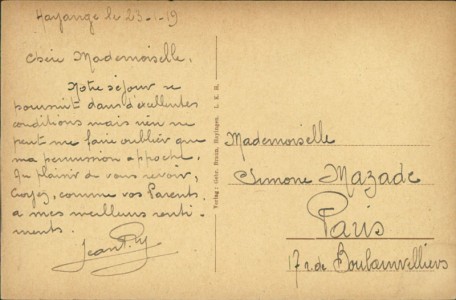 Hayange le 23-1-19
Chère Mademoiselle,
Notre séjour se
poursuit dans d'excellentes
conditions mais rien ne
peut me faire oublier que
ma permission approche.
Au plaisir de vous revoir,
Croyez, comme vos Parents
a mes meilleurs senti-
ments.
Jean
Verlag: Gebr. Hayingen. L. E. H.
Mademoiselle
Simone Mazade
Paris
17 r. de Boulainvilliers